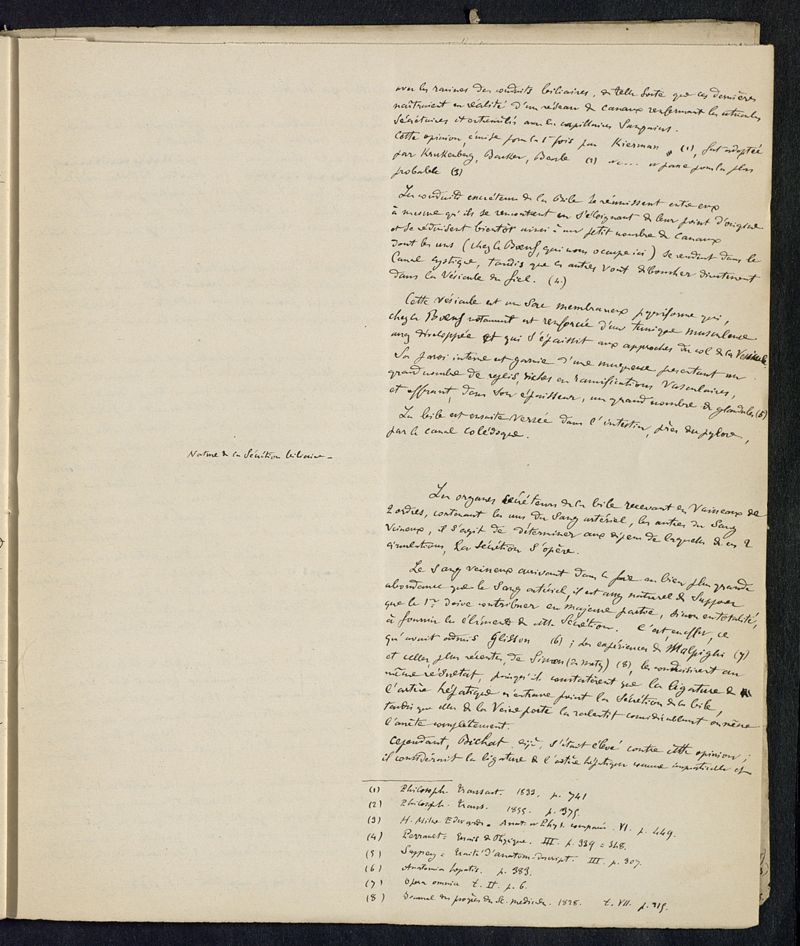 avec les racines des conduits biliaires, de telle sorte que ces dernières
naîtraient en réalité d'un réseau de canaux renfermant les utricules
sécrétoires et entremêlés avec les capillaires sanguins.
Cette opinion, émise pour la 1e fois par Kiernan (1), fut adoptée
par Krukenberg, Backer, Beale (2) etc... et paraît pour la plus
probable (3)
Les conduits excréteurs de la bile se réunissent entre eux
à mesure qu'ils se remontent en s'éloignant de leur point d'origine
et se réduisent bientôt ainsi à un petit nombre de canaux
dont les uns (chez le Bœuf, qui nous occupe ici) se rendent dans le
Canal cystique, tandis que les autres vont déboucher directement
dans la Vésicule du fiel. (4)
Cette vésicule est un sac membraneux pyriforme qui,
chez le Bœuf notamment est renforcée d'une tunique musculeuse
assez développée et qui s'épaissit aux approches du col de la Vésicule
Sa paroi interne est garnie d'une muqueuse présentant un
grand nombre de replis, riches en ramifications vasculaires,
et offrant, dans son épaisseur, un grand nombre de glandules (5)
La bile est ensuite versée dans l'intestin, près du pylore,
par le canal colédoque.
Nature de la Sécrétion biliaire _
Les organes sécréteurs de la bile recevant des Vaisseaux de
2 ordres, contenant les uns du Sang artériel, les autres du Sang
Veineux, il s'agit de déterminer aux dépens de laquelle de ces 2
circulations, la sécrétion s'opère.
Le Sang veineux arrivant dans le foie en bien plus grande
abondance que le Sang artériel, il est assez naturel de supposer
que le 1er doive contribuer en majeure partie, sinon en totalité,
à fournir les éléments de cette Sécrétion. C'est, en effet, ce
qu'avait admis Glisson (6) ; Les expériences de Malpighi (7)
et celles, plus récentes, de Simon (de Metz) (8), les conduisirent au
même résultat, puisqu'ils constatèrent que la ligature de
l'artère hépatique n'entrave point la Sécrétion de la bile,
tandis que celle de la Veine porte la ralentit considérablement ou même
l'arrête complètement.
Cependant, Bichat, déjà, s'était élevé contre cette opinion ;
il considérait la ligature de l'artère hépatique comme impraticable et
(1) Philosoph. Transact. 1833. p. 741
(2) Philosoph. Trans. 1855. p. 375.
(3) H. Milne Edwards. Anat. et Phys. comparée. VI. p. 449.
(4) Perrault : Essais de Physique. III. p. 339 = 348.
(5) Sappey = Traité d'anatom. descript. III. p. 307.
(6) Anatomia hepatis. p. 383.
(7) Opera omnia t. II. p. 6.
(8) Journal des progrès des Sc. médicales. 1828. t. VII. p. 215.